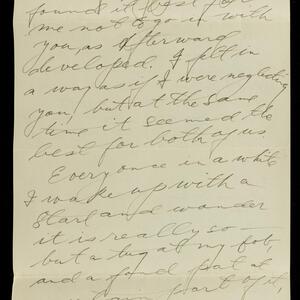 found it best for
me not to go in with
you, as afterward
developed. I felt in
a way as if I were neglecting
you, but at the same
time it seemed the
best for both of us
Every once in a while
I wake up with a
start and wonder
it is really so—
but a tug at my fob,
and a fond pat at
part of it,